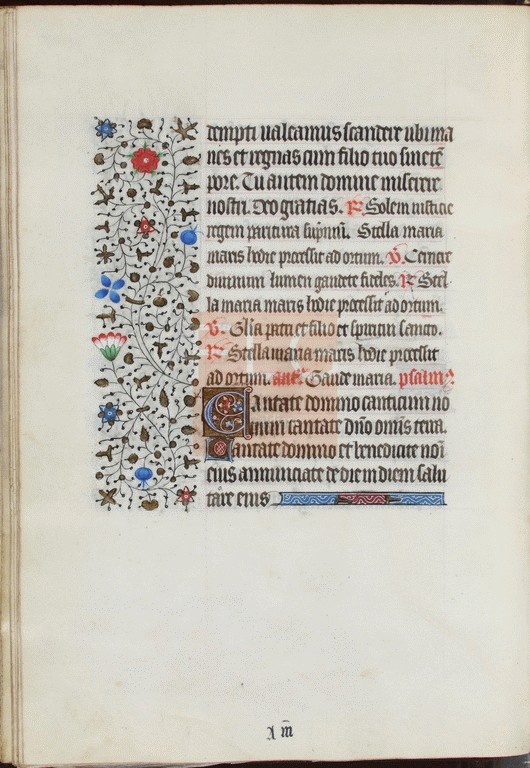 dempti valeamus scandere ubi ma
nes et regnas cum filio tuo sine tē
pore. Tu autem domine miserere
nostri. Deo gratias. R̷ Solem iusticie
regem paritura supmū. Stella maria
maris hodie processit ad ortum. V̷. Cernere
diuinum lumen gaudete fideles. R̷ Stel
la maria maris hodie processit ad ortum.
V̷. Glia patri et filio et spiritui sancto.
R̷ Stella maria maris hodie processit
ad ortum. ant. Gaude maria. psalm
Cantate domino canticum no
uum cantate dn̄o omīs terra.
Cantate domino et benedicite noī
eius annunciate de die in diem salu
tare eius